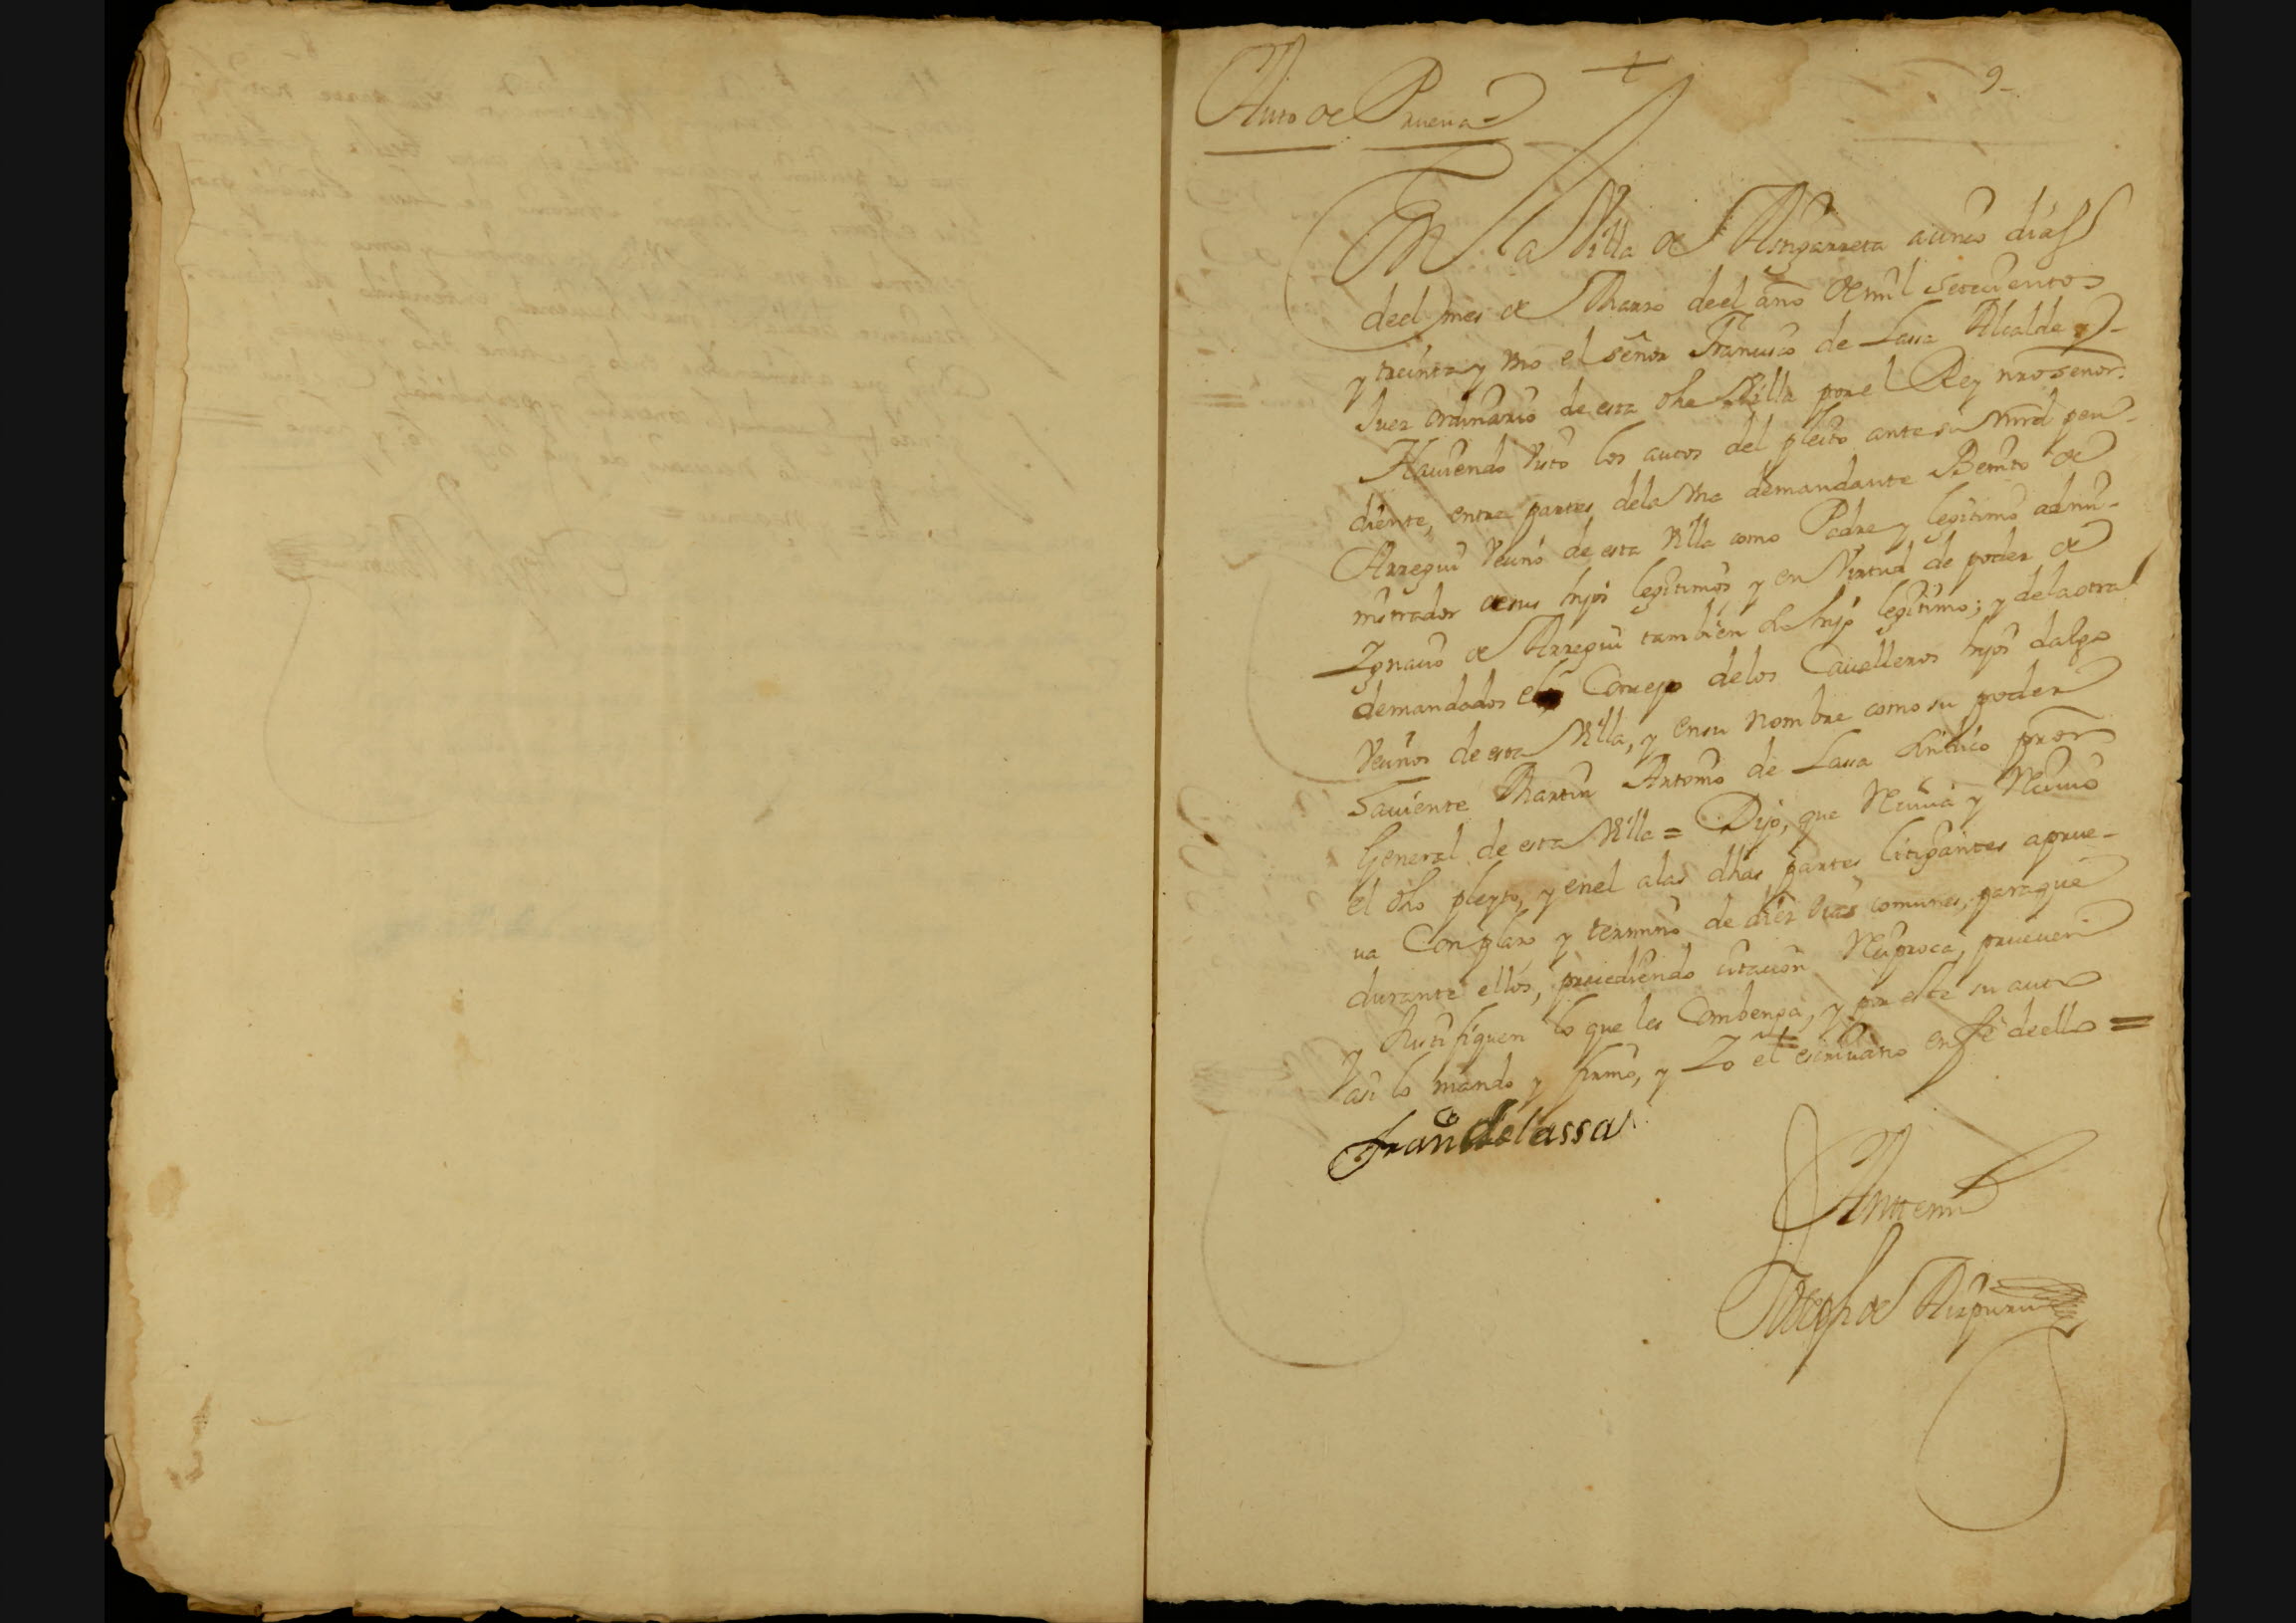 9
Auto de Prueua
En la Villa de Asteasu a cinco dias
deel mes de Marzo deel año de mil setecientos
y treinta y vno el señor Francisco de Lassa Alcalde y
Juez ordinario de esta dha Villa por el Rey nro señor.
Hauiendo visto los autos del pleito ante su mrd pen-
diente, entre partes dela vna demandante Benito de
Arregui vecino de esta Villa como Padre y legitimo admi-
nistrador de sus hijos legitimos y en virtud de poder de
Ignacio de Arregui tambien su hijo legitimo; y dela otra
demandados el Concejo delos Caualleros hijos dalgo
vecinos de esta Villa, y en su nombre como su poder
Tauiente Martin Antonio de Lassa sindico pror
General de esta Villa = Dijo, que Reciuia y Reciuio
el dho pleyto, y enel alas dhas partes litigantes a prue-
ua Con plazo y termino de diez dias comunes, paraque
durante ellos, precediendo citacion Reciproca, prueuen
y Justifiquen lo que les Combenga, y por este su auto
asi lo mando y firmo, y Yo el escriuano en fe deello =
Franco de lassa
Antte mi
Joseph de Aizpuru